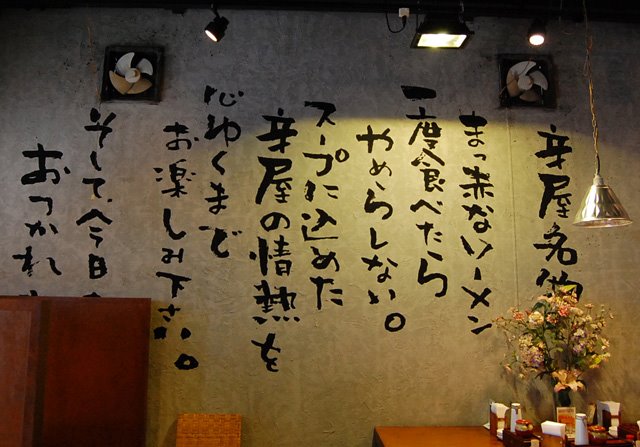 辛屋名物
まっ赤なソーメン
一度食べたら
やめらしない。
スープに込めた
辛屋の情熱を
心ゆくまで
お楽しみ下さい。
そして、今日
おつかれ